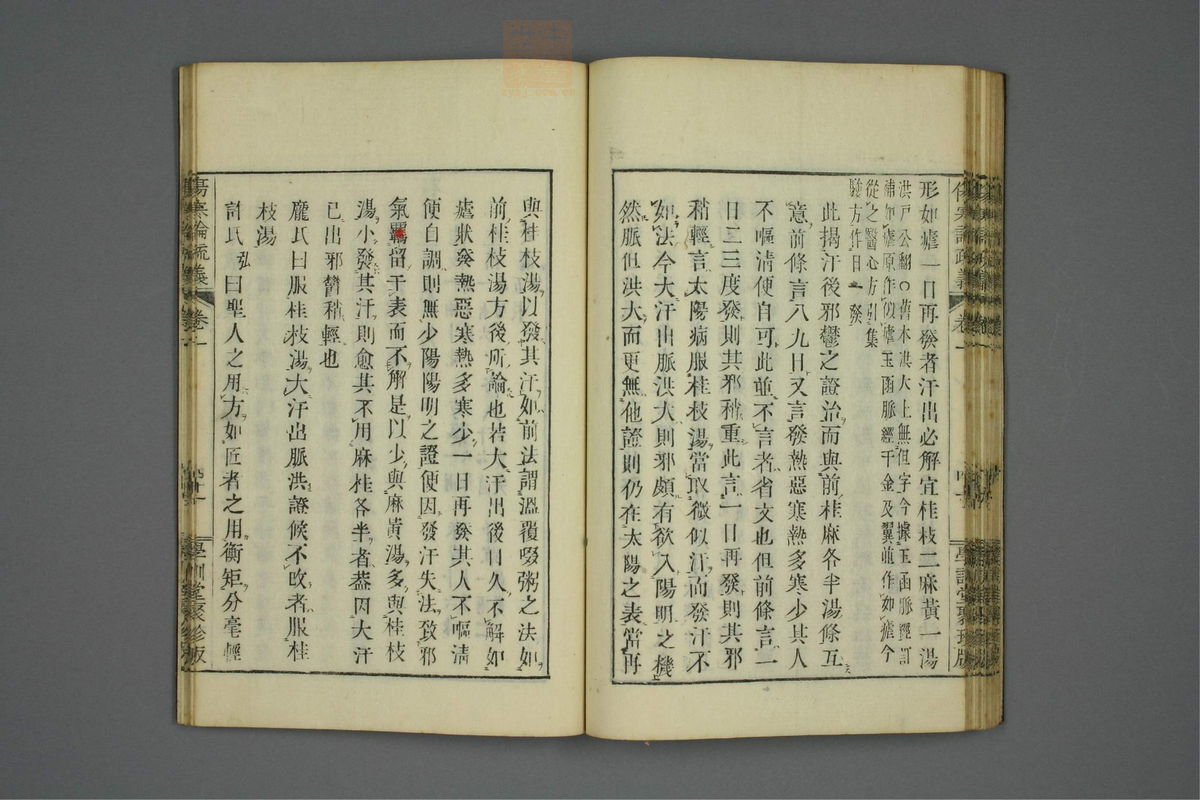 形如瘧一日再發者汗出必解宜桂枝二麻黃一湯
洪戸公翻○舊本洪大上無但字今據玉函脈經訂
補如瘧原作似瘧玉函脈經千金及翼並作如瘧今
從之醫心方引集
驗方作日一發
此揭汗後邪鬱之證治而與前桂麻各半湯條互
意前條言八九日又言發熱惡寒熱多寒少其人
不嘔清便自可此並不言者省文也但前條言一
日二三度發則其邪稍重此言一日再發則其邪
稍輕言太陽病服桂枝湯當取微似汗而發汗不
如法今大汗出脈洪大則邪頗有欲入陽明之機
然脈但洪大而更無他證則仍在太陽之表當再
與桂枝湯以發其汗如前法謂溫覆啜粥之法如
前桂枝湯方後所論也若大汗出後日久不解如
瘧狀發熱惡寒熱多寒少一日再發其人不嘔清
便自調則無少陽陽明之證便因發汗失法致邪
氣羈留于表而不解是以少與麻黃湯多與桂枝
湯小發其汗則愈其不用麻桂各半者蓋因大汗
已出邪勢稍輕也
龐氏曰服桂枝湯大汗出脈洪證候不改者服桂
枝湯
許氏弘曰聖人之用方如匠者之用衡矩分毫輕
傷寒論疏義
卷一
學訓堂聚珍版